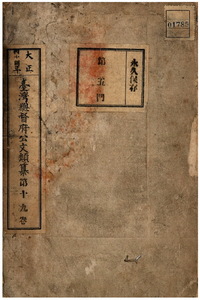 01785
永久保存
第五門
大正
臺灣總督府公文類纂第十九卷